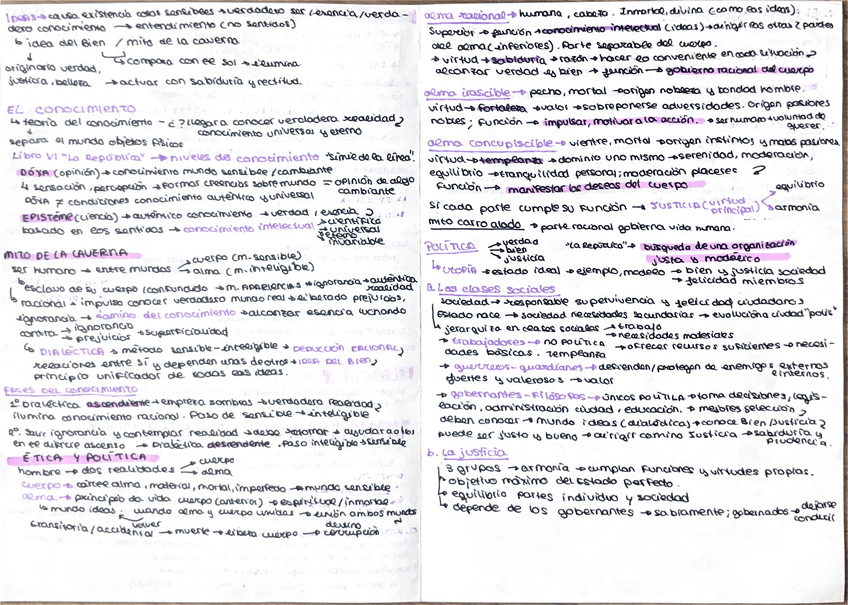 causa existencia cosas sensibles → verdadero ser/esencia/verda-
dero conocimiento → entendimiento (no sentidos)
↳ idea del Bien / mito de la caverna
↳ compara con el sol → ilumina
originaria verdad,
justicia, belleza → actuar con sabiduría y rectitud.
EL CONOCIMIENTO
↳ teoría del conocimiento - ¿? llegar a conocer verdadera realidad,
conocimiento universal y eterno
separa el mundo objetos físicos
Libro VI "La República" → niveles del conocimiento "símil de la línea".
DÓXA (opinión) → conocimiento mundo sensible / cambiante
↳ sensación, percepción → formar creencias sobre mundo = opinión de algo
cambiante
DÓXA ≠ condiciones conocimiento auténtico y universal
EPISTÉME (ciencia) → auténtico conocimiento → verdad / esencia
basado en los sentidos → conocimiento intelectual
→ científico
→ universal
→ eterno
invariable
MITO DE LA CAVERNA
ser humano → entre mundos
→ cuerpo (m. sensible)
→ alma (m. inteligible)
↳ esclavo de su cuerpo/confundido → M. APARIENCIAS → ignorancia → auténtica
realidad
↳ racional → impulso conocer verdadero mundo real → liberado prejuicios,
ignorancia → camino del conocimiento → alcanzar esencia luchando
contra → ignorancia
→ prejuicios → superficialidad
↳ DIALÉCTICA → método sensible-inteligible → DEDUCCIÓN RACIONAL,
relaciones entre sí y dependen unas de otros → IDEA DEL BIEN,
principio unificador de todas las ideas.
FASES DEL CONOCIMIENTO
1º Dialéctica ascendente → empieza sombras → verdadera realidad,
ilumina conocimiento racional. Paso de sensible → inteligible
2º. Salir ignorancia y contemplar realidad → debe retornar → ayudar a otros
en el difícil ascenso → Dialéctica descendente. Paso inteligible → sensible
ÉTICA Y POLÍTICA
hombre → dos realidades
→ cuerpo
→ alma
cuerpo → cárcel alma, material, mortal, imperfecto → mundo sensible
alma → principio da vida cuerpo (anterior) → espiritual/inmortal
↳ mundo ideas; cuando alma y cuerpo unidas → unión ambos mundos
volver
transitoria/accidental → muerte → libera cuerpo → corrupción
destino
alma racional → humana, cabeza. Inmortal, divina (como las ideas).
Superior → función → conocimiento intelectual (ideas) → dirigir las otras 2 partes
del alma (inferiores). Parte separable del cuerpo.
→ virtud → sabiduría → razón → hacer lo conveniente en cada situación,
alcanzar verdad y bien → función → gobierno racional del cuerpo
alma irascible → pecho, mortal → origen nobleza y bondad hombre.
virtud → fortaleza → valor → sobreponerse adversidades. Origen pasiones
nobles; función → impulsar, motivar a la acción. → ser humano → voluntad de
querer.
alma concupiscible → vientre, mortal → origen instintos y malas pasiones
virtud → templanza → dominio uno mismo → serenidad, moderación,
equilibrio → tranquilidad personal; moderación placeres
Función → manifestar los deseos del cuerpo
Si cada parte cumple su función → JUSTICIA (virtud
principal)
→ equilibrio
→ armonía
mito carro alado → parte racional gobierna vida humana.
POLÍTICA
→ verdad
→ bien
→ justicia
"La República" → búsqueda de una organización
justa y modélica
↳ UTOPÍA → estado ideal → ejemplo, modelo → bien y justicia sociedad
→ felicidad miembros
a. Las clases sociales
sociedad → responsable supervivencia y felicidad ciudadanos
Estado nace → sociedad necesidades secundarias → evoluciona ciudad "polis"
↳ jerarquiza en clases sociales → trabajo
→ necesidades materiales
→ trabajadores → no política → ofrecer recursos suficientes → necesi-
dades básicas. Templanza
→ guerreros-guardianes → defienden/protegen de enemigos externos
e internos.
fuertes y valerosos → valor
→ gobernantes-Filósofos → únicos POLÍTICA → toma decisiones, legis-
lación, administración ciudad, educación. → mejores selección,
deben conocer → mundo ideas (dialéctica) → conoce Bien/Justicia,
puede ser justo y bueno → dirigir camino Justicia → sabiduría y
prudencia.
b. La justicia
↳ 3 grupos → armonía → cumplan funciones y virtudes propias.
↳ objetivo máximo del Estado perfecto.
↳ equilibrio partes individuo y sociedad
↳ depende de los gobernantes → sabiamente; gobernados → dejarse
conducir